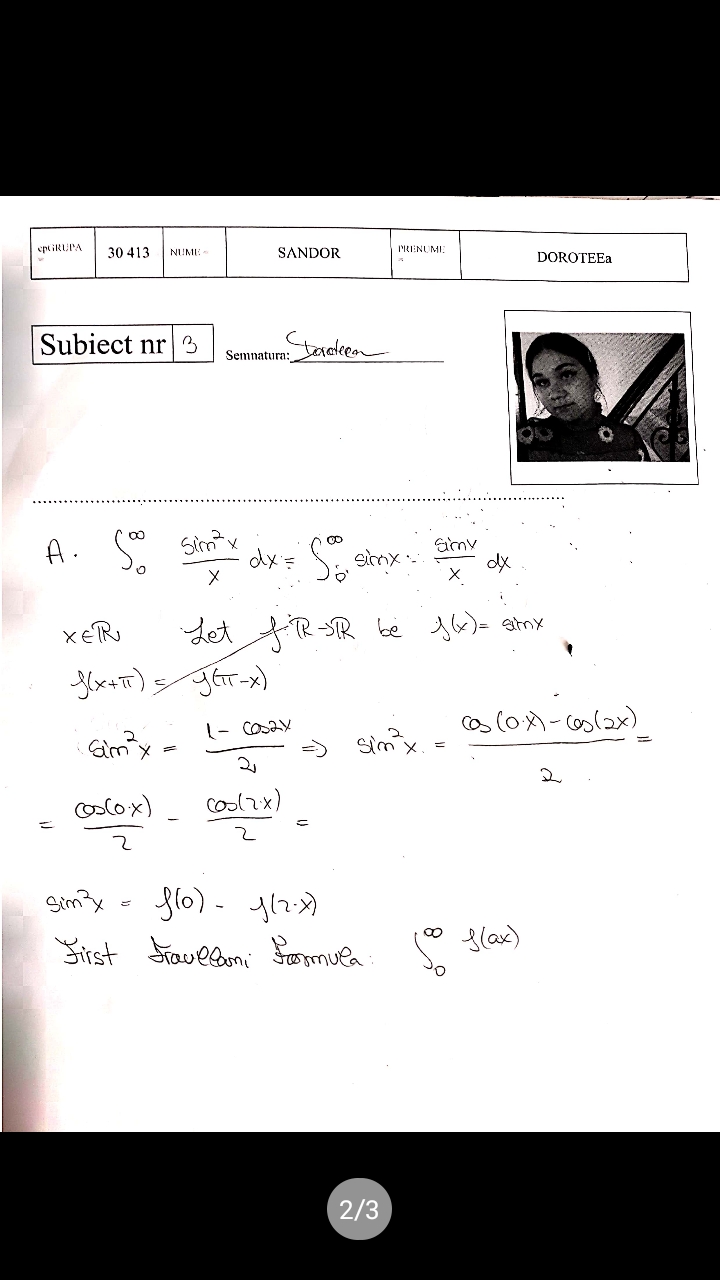 cpGRUPA = 30 413 NUME = SANDOR PRENUME = DOROTEEa
Subiect nr 3 Semnatura: Doroteea
A. ∫₀^∞ sin²x/x dx = ∫₀^∞ sinx · sinx/x dx
x∈ℝ Let f:ℝ→ℝ be f(x) = sinx
f(x+π) = f(π-x)
sin²x = (1 - cos2x)/2 => sin²x = (cos(0·x) - cos(2x))/2 =
= cos(0·x)/2 - cos(2·x)/2 =
sin²x = f(0) - f(2·x)
First Froullani Formula: ∫₀^∞ f(ax)
2/3